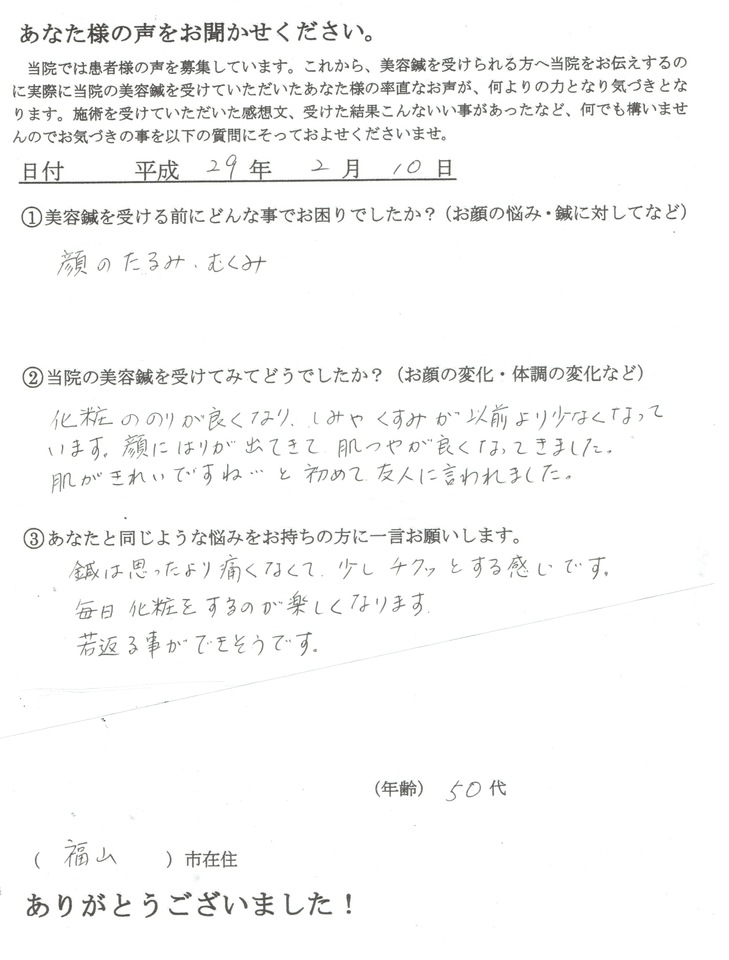 あなた様の声をお聞かせください。
当院では患者様の声を募集しています。これから、美容鍼を受けられる方へ当院をお伝えするの
に実際に当院の美容鍼を受けていただいたあなた様の率直なお声が、何よりの力となり気づきとな
ります。施術を受けていただいた感想文、受けた結果こんないい事があったなど、何でも構いませ
んのでお気づきの事を以下の質問にそっておよせくださいませ。
日付 平成 29 年 2 月 10 日
①美容鍼を受ける前にどんな事でお困りでしたか？（お顔の悩み・鍼に対してなど）
顔のたるみ、むくみ
②当院の美容鍼を受けてみてどうでしたか？（お顔の変化・体調の変化など）
化粧ののりが良くなり、しみやくすみが以前より少なくなって
います。顔にはりが出てきて、肌つやが良くなってきました。
肌がきれいですね…と初めて友人に言われました。
③あなたと同じような悩みをお持ちの方に一言お願いします。
鍼は思ったより痛くなくて、少しチクッとする感じです。
毎日化粧をするのが楽しくなります。
若返る事ができそうです。
（年齢） 50 代
（ 福山 ）市在住
ありがとうございました！